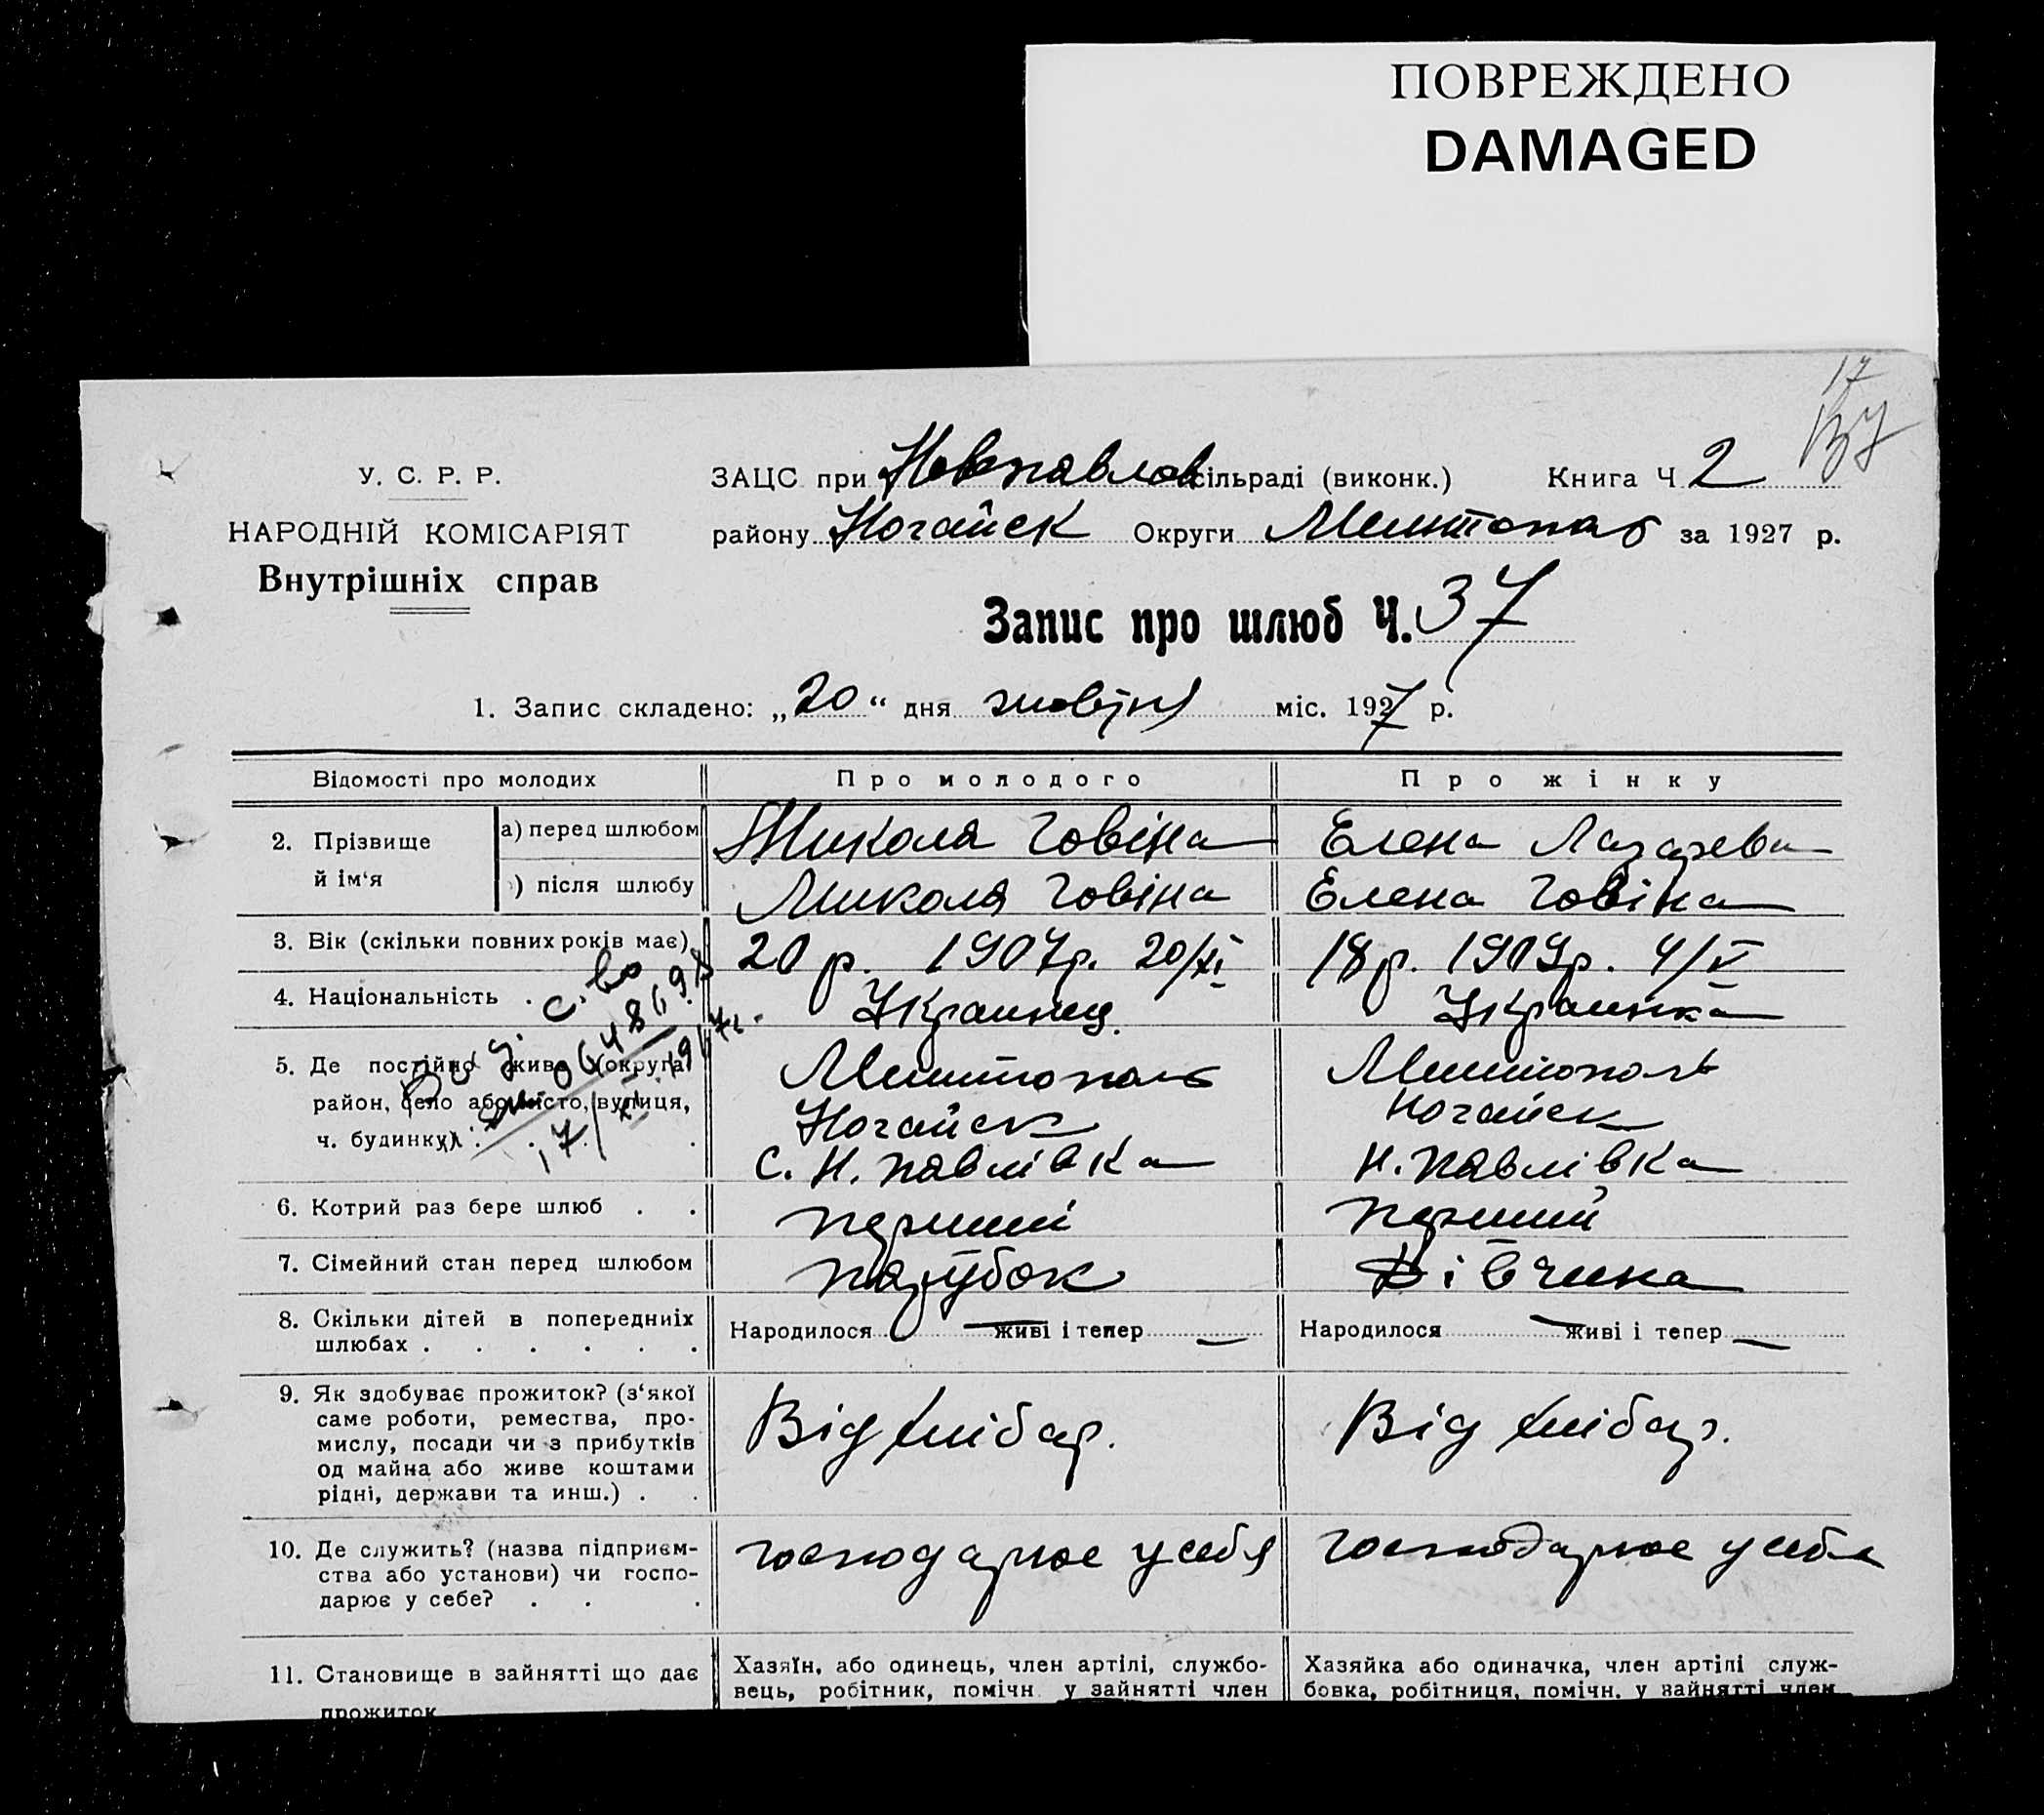 ПОВРЕЖДЕНО
DAMAGED
17
У. С. Р. Р.
НАРОДНІЙ КОМІСАРІЯТ
Внутрішніх справ
ЗАЦС при Новопавлов сільраді (виконк.) Книга Ч 2
району Ногайск Округи Мелитополь за 1927 р.
Запис про шлюб Ч. 37
1. Запис складено: „20“ дня жовтня міс. 1927 р.
Відомості про молодих Про молодого Про жінку
2. Прізвище й ім‘я
а) перед шлюбом Микола Говіна Елена Лазарева
) після шлюбу Микола Говіна Елена Говіна
3. Вік (скільки повних років має) 20 р. 1907р. 20/XI 18р. 1909р. 4/V
4. Національність . Украинец. Украинка
5. Де постійно живе (округа,
район, село або місто, вулиця,
ч. будинку) .
Мелитополь
Ногайск
С. Н. Павлівка
Мелитополь
Ногайск
Н. Павлівка
6. Котрий раз бере шлюб . . перший перший
7. Сімейний стан перед шлюбом парубок Дівчина
8. Скільки дітей в попередніх
шлюбах . . . . . .
Народилося — живі і тепер —
Народилося — живі і тепер —
9. Як здобуває прожиток? (з‘якої
саме роботи, ремества, про-
мислу, посади чи з прибутків
од майна або живе коштами
рідні, держави та инш.) . .
Від хлібор.
Від хлібор.
10. Де служить? (назва підприєм-
ства або установи) чи госпо-
дарює у себе? . . .
господарює у себя
господарює у себе
11. Становище в зайнятті що дає
прожиток
Хазяїн, або одинець, член артілі, службо-
вець, робітник, помічн. у зайнятті член
Хазяйка або одиначка, член артілі служ-
бовка, робітниця, помічн. у зайнятті член